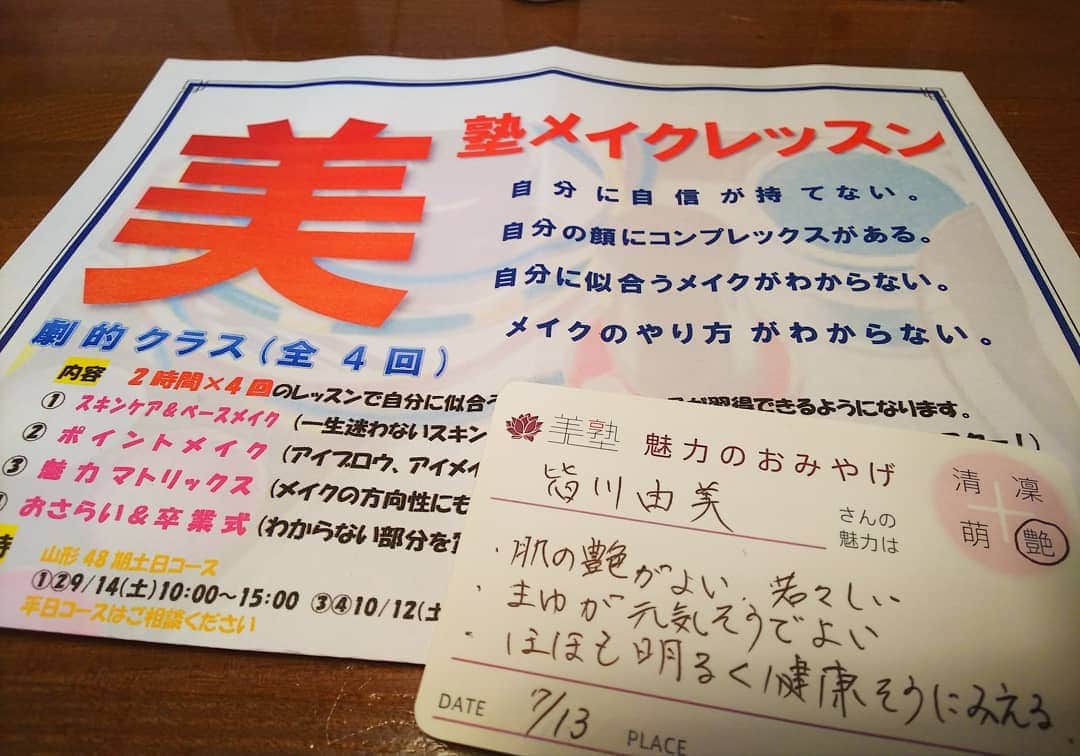 美塾メイクレッスン
自分に自信が持てない。
自分の顔にコンプレックスがある。
自分に似合うメイクがわからない。
メイクのやり方がわからない。
劇的クラス(全4回)
内容 2時間×4回のレッスンで自分に似合う
が習得できるようになります。
① スキンケア&ベースメイク (一生迷わないスキン
② ポイントメイク (アイブロウ、アイメイ
③ 魅力マトリックス (メイクの方向性にも
おさらい&卒業式 (わからない部分を
山形48期土日コース
①②9/14(土)10:00~15:00 ③④10/12(土
平日コースはご相談ください
美塾 魅力のおみやげ
皆川由美 さんの
魅力は
清 凜
萌 艶
・肌の艶がよい、若々しい
・まゆが元気そうでよい
・ほほも明るく健康そうにみえる
DATE 7/13 PLACE